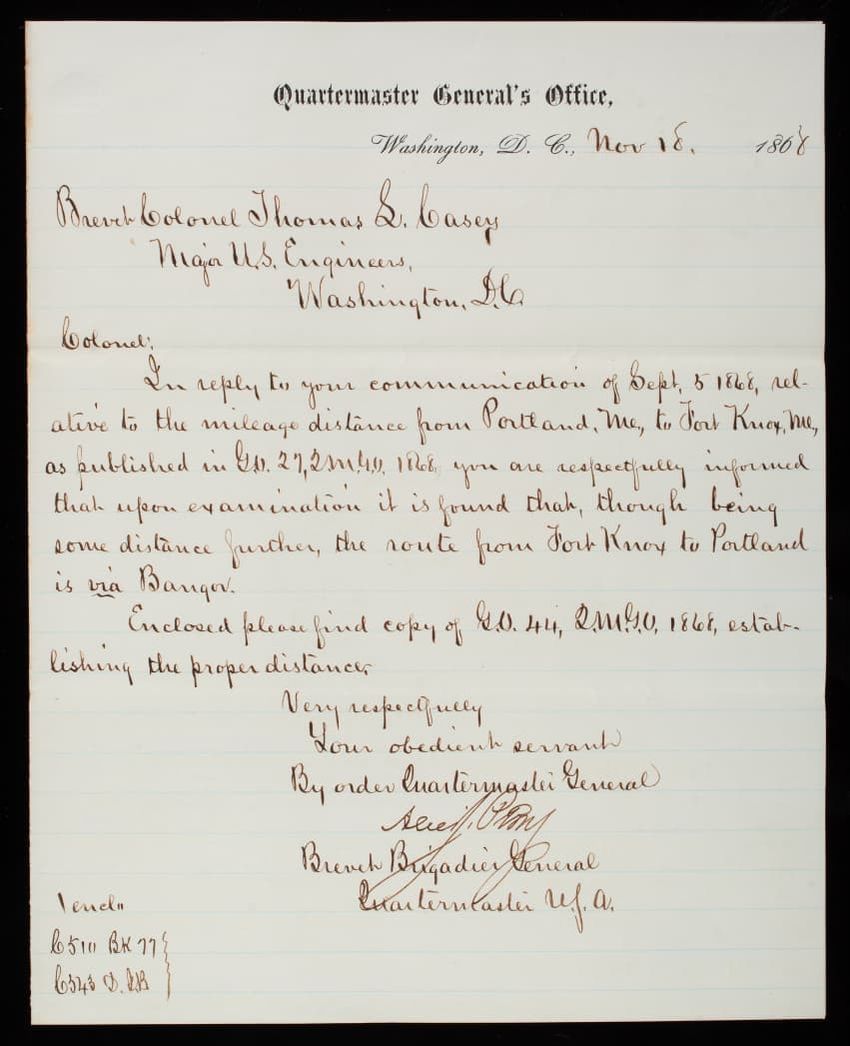 Quartermaster General's Office,
Washington, D. C., Nov 18. 1868
Brevet Colonel Thomas L. Casey
Major U.S. Engineers,
Washington, D.C.
Colonel:
In reply to your communication of Sept. 5 1868, rel-
ative to the mileage distance from Portland, Me, to Fort Knox, Me,
as published in G.O. 27, Q.M.G.O. 1868, you are respectfully informed
that upon examination it is found that, though being
some distance further, the route from Fort Knox to Portland
is via Bangor.
Enclosed please find copy of G.O. 44, Q.M.G.O. 1868, estab-
lishing the proper distance,
Very respectfully
Your obedient servant
By order Quartermaster General
Brevet Brigadier General
Quartermaster U.S.A.
1 encl"
C 510 BK 77